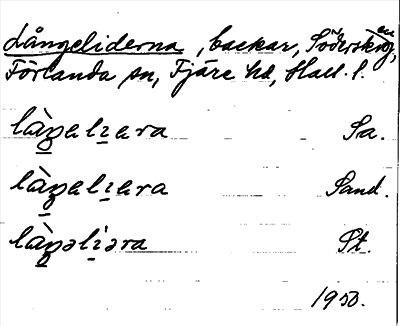 Långeliderna, backar, Söderskog,
Förlanda sn, Fjäre hd, Hall. l.
làŋalıara Sa.
làŋalıara Sand.
làŋəlıəra Pt.
1950.